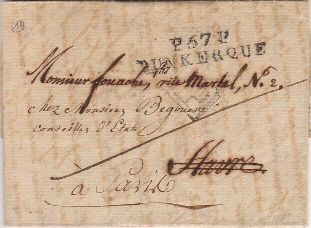 19
P.57.P
DUNKERQUE
Monsieur fouache, rue Martel, N.° 2,
chez Monsieur Begouen
conseiller d'Etat
Havre
à Paris